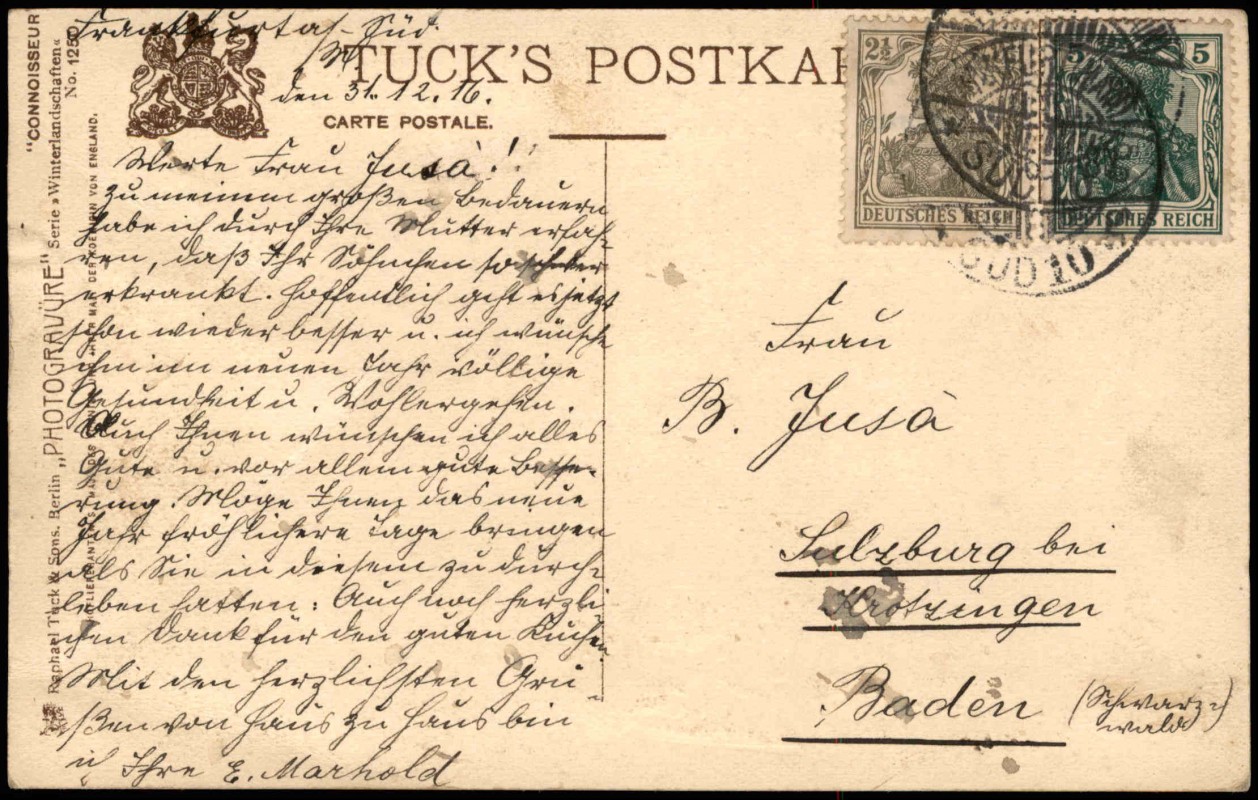 Frankfurt a/M Süd
den 31.12.16.
TUCK'S POSTKAR
CARTE POSTALE.
"CONNOISSEUR
Raphael Tuck & Sons. Berlin „PHOTOGRAVÜRE" Serie »Winterlandschaften«
No. 1252
HOFLIEFERANTEN S. MAJ. DES UND IHRER MAJ. DER KOENIGIN VON ENGLAND.
Werte Frau Jusà!
Zu meinem großen Bedauern
habe ich durch Ihre Mutter erfah-
ren, daß Ihr Söhnchen so schwer
erkrankt. Hoffentlich geht es jetzt
schon wieder besser u. ich wünsche
ihm im neuen Jahr völlige
Gesundheit u. Wohlergehen.
Auch Ihnen wünschen ich alles
Gute u. vor allem gute Besse-
rung. Möge Ihnen das neue
Jahr fröhlichere Tage bringen
als Sie in diesem zu durch-
leben hatten. Auch noch herzli
chen Dank für den guten Kuchen
Mit den herzlichsten Grü-
ßen von Haus zu Haus bin
ich Ihre E. Marhold
2½
5 5
DEUTSCHES REICH
DEUTSCHES REICH
SÜD 10
Frau
B. Jusà
Sulzburg bei
Krotzingen
Baden (Schwarz-
wald)